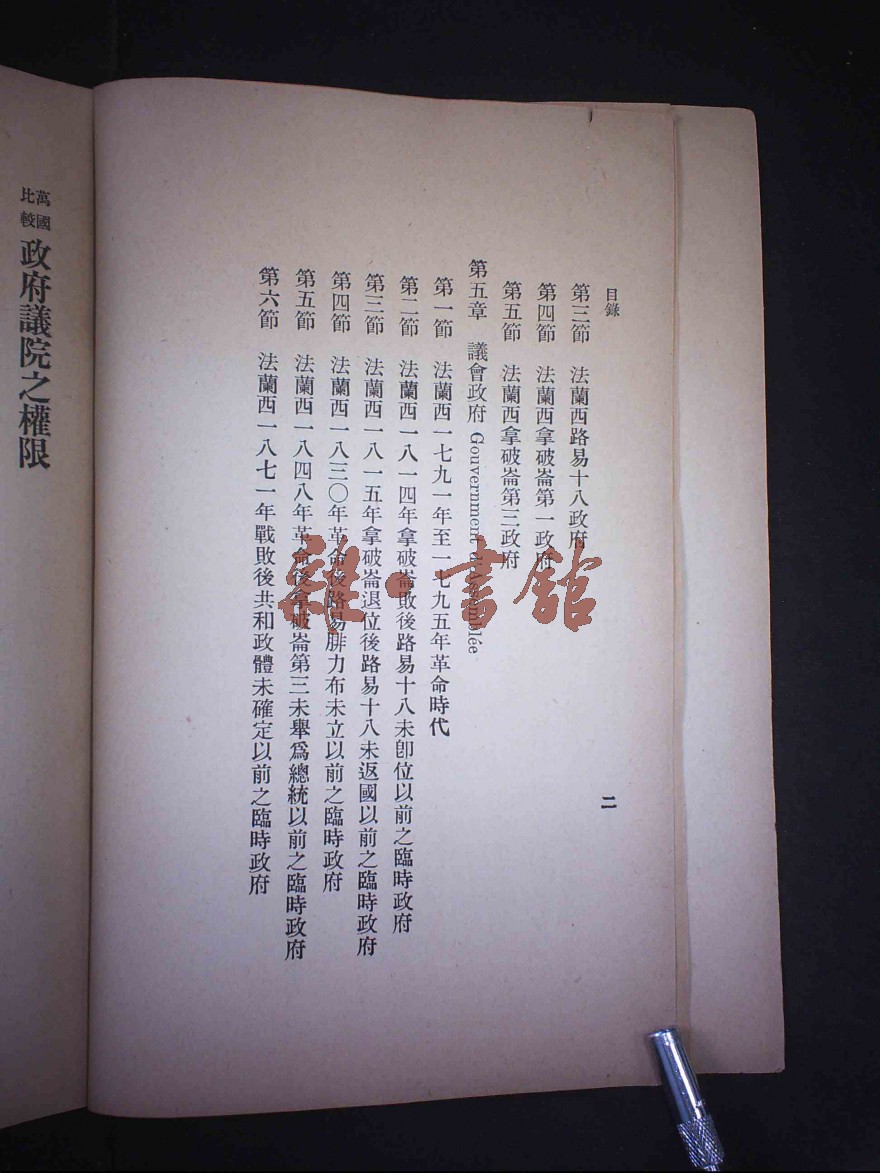 目錄
二
第三節　法蘭西路易十八政府
第四節　法蘭西拿破崙第一政府
第五節　法蘭西拿破崙第三政府
第五章　議會政府 Gouvernment d'assemblée
第一節　法蘭西一七九一年至一七九五年革命時代
第二節　法蘭西一八一四年拿破崙敗後路易十八未卽位以前之臨時政府
第三節　法蘭西一八一五年拿破崙退位後路易十八未返國以前之臨時政府
第四節　法蘭西一八三〇年革命後路易腓力布未立以前之臨時政府
第五節　法蘭西一八四八年革命後拿破崙第三未舉爲總統以前之臨時政府
第六節　法蘭西一八七一年戰敗後共和政體未確定以前之臨時政府
萬國
比較
政府議院之權限
雜·書館